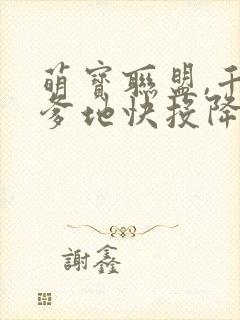 萌寶聯盟,千
爹地快投降
謝鑫